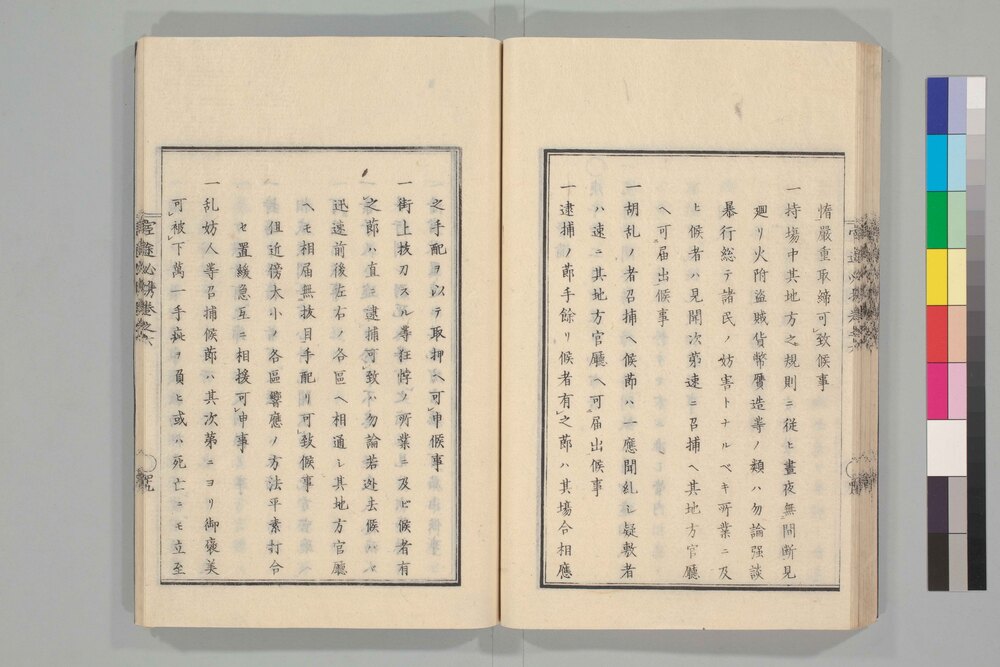 惰嚴重取締可致候事
一持場中其地方之規則ニ従ヒ晝夜無間断見
廻リ火附盗賊貨幣贋造等ノ類ハ勿論强談
暴行総テ諸民ノ妨害トナルベキ所業ニ及
ヒ候者ハ見聞次第速ニ召捕ヘ其地方官廳
ヘ可届出候事
一胡乱ノ者召捕ヘ候節ハ一應聞糺シ疑敷者
ハ速ニ其地方官廳ヘ可届出候事
一逮捕ノ節手餘リ候者有之節ハ其場合相應
之手配ヲ以テ取押ヘ可申候事
一街上抜刀スル等狂悖ノ所業ニ及ビ候者有
之節ハ直ニ逮捕可致ハ勿論若迯去候ハヽ
迅速前後左右ノ各區ヘ相通シ其地方官廳
ヘモ相届無抜目手配リ可致候事
但近傍大小ノ各區響應ノ方法平素打合
セ置緩急互ニ相援可申事
一乱妨人等召捕候節ハ其次第ニヨリ御褒美
可被下萬一手疵ヲ負ヒ或ハ死亡ニモ立至